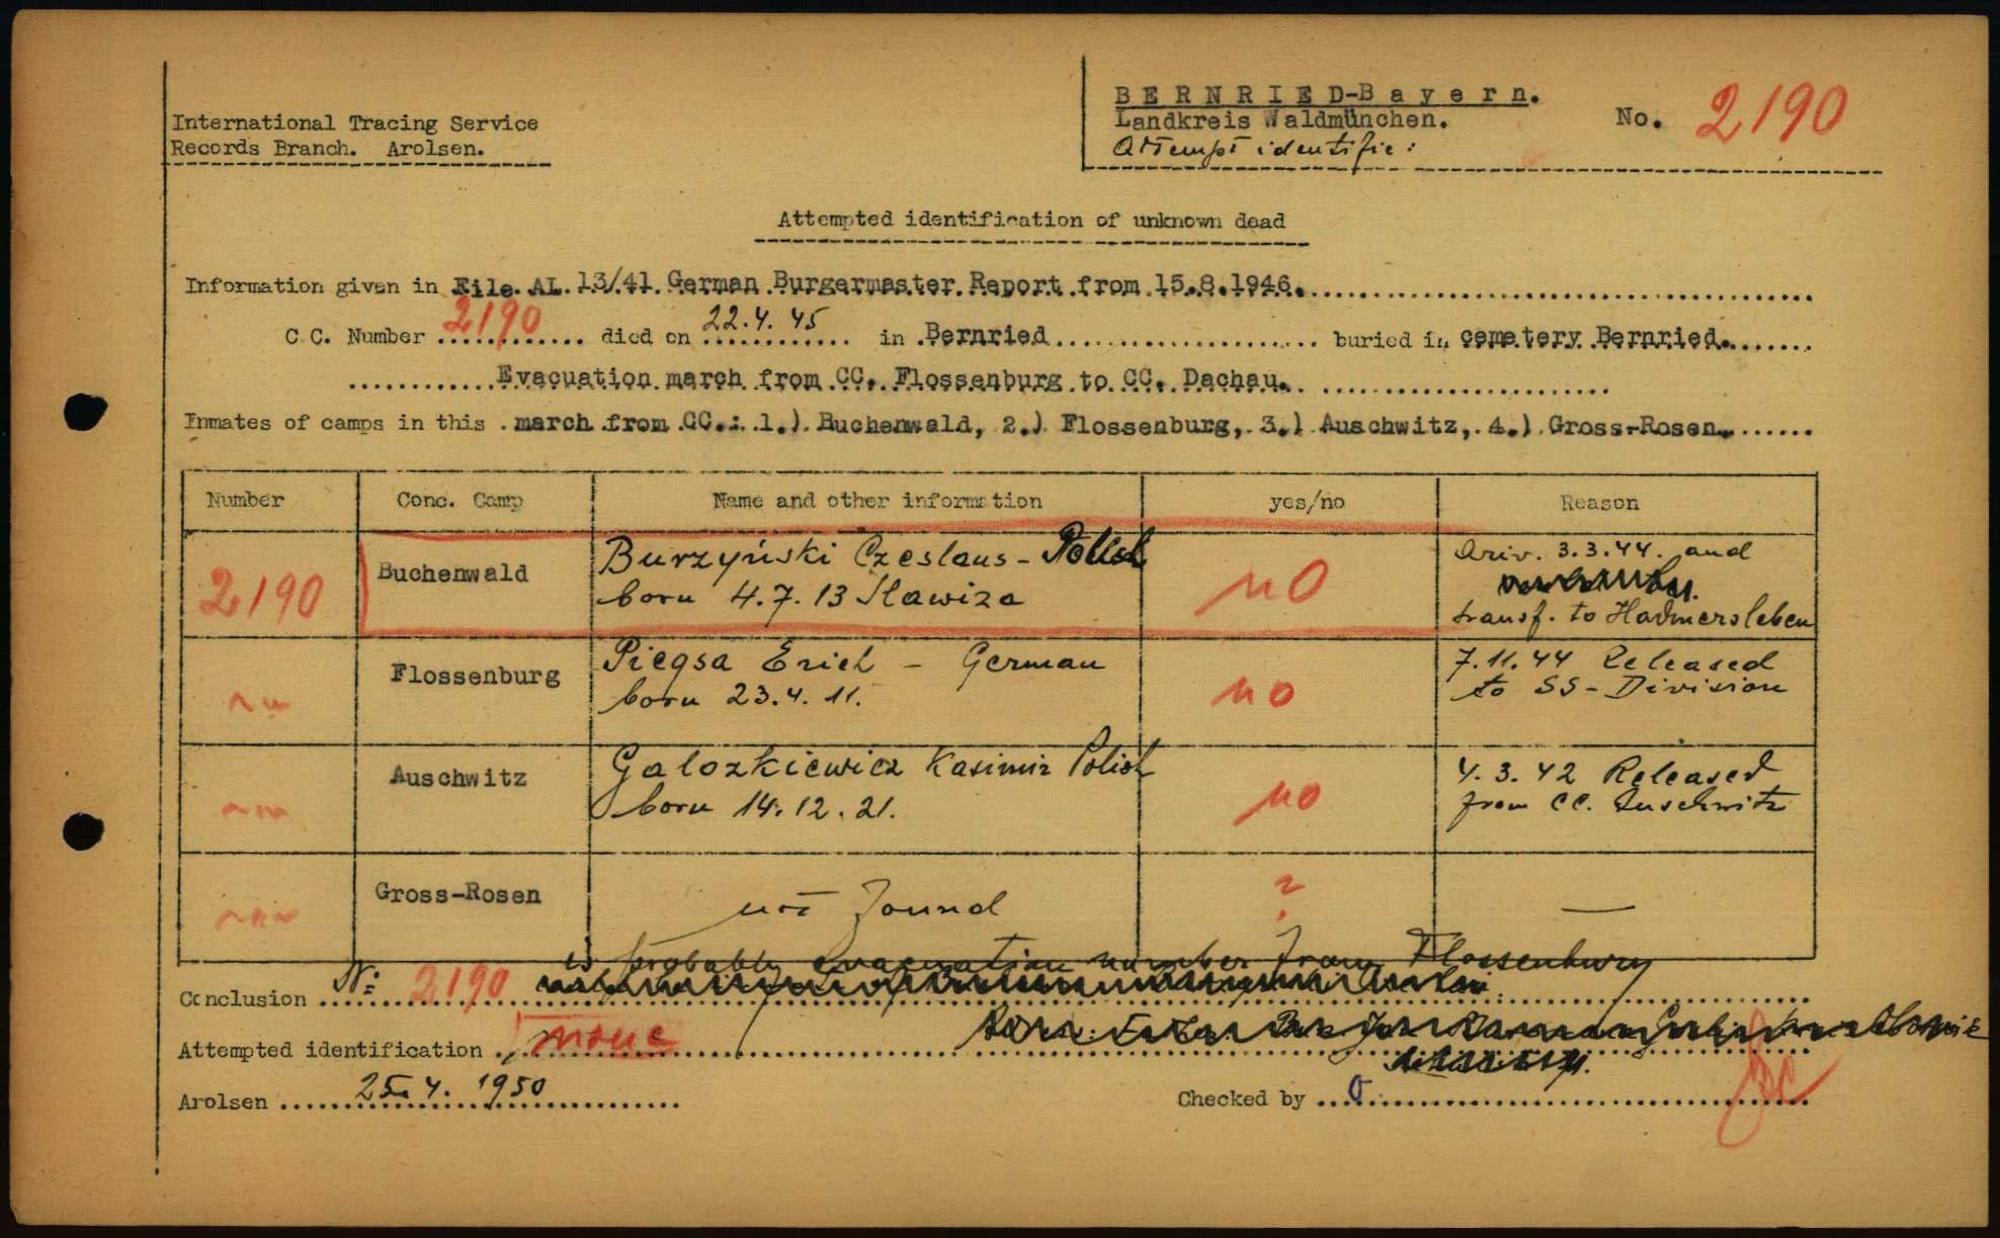 International Tracing Service
Records Branch. Arolsen.
BERNRIED-Bayern.
Landkreis Waldmünchen.
Attempt identific:
No. 2190
Attempted identification of unknown dead
Information given in File. AL. 13/41. German Burgermaster Report from 15.8.1946.
C.C. Number 2190 died on 22.4.45 in Bernried buried in cemetery Bernried.
Evacuation march from CC. Flossenburg to CC. Dachau.
Inmates of camps in this march from CC.: 1.) Buchenwald, 2.) Flossenburg, 3.) Auschwitz, 4.) Gross-Rosen.
Number Conc. Camp Name and other information yes/no Reason
2190 Buchenwald Burzyński Czeslaus - Polish
born 4.7.13 Slawiza
no
Ariv. 3.3.44. and
transf. to Hadmersleben
Flossenburg Piegsa Erich - German
born 23.4.11.
no
7.11.44 Released
to SS-Division
Auschwitz Galozkiewicz Kasimir Polish
born 14.12.21.
no
4.3.42 Released
from CC. Auschwitz
Gross-Rosen not found ? —
is probably evacuation number from Flossenburg
Conclusion No: 2190
Attempted identification none
Arolsen 25.4.1950
Checked by